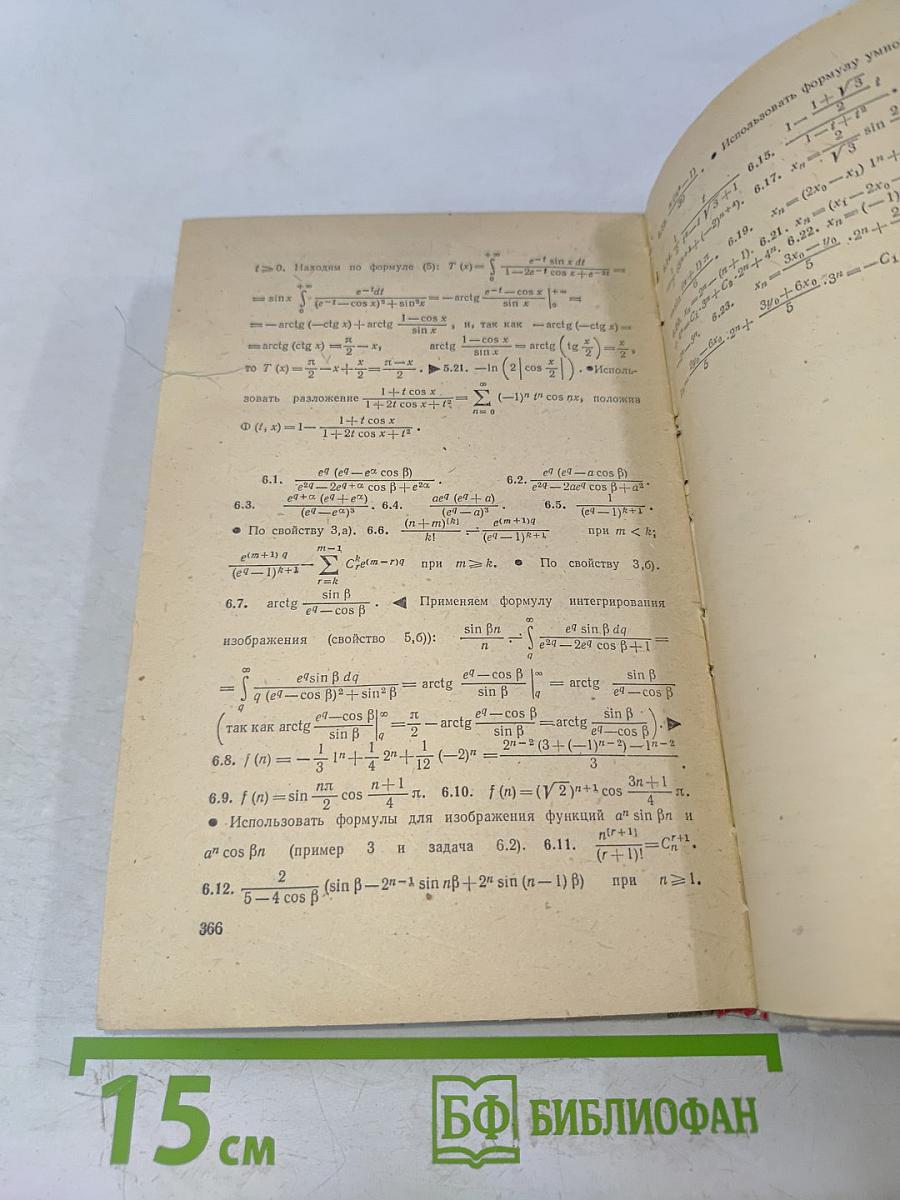 t ⩾ 0. Находим по формуле (5): T (x) = ∫₀^{+∞} e^{−t} sin x dt / (1 − 2e^{−t} cos x + e^{−2t}) =
= sin x ∫₀^{+∞} e^{−t}dt / ((e^{−t} — cos x)² + sin²x) = — arctg (e^{−t} — cos x)/(sin x) |₀^{+∞} =
= — arctg (—ctg x) + arctg (1 — cos x)/(sin x), и, так как — arctg (—ctg x) =
= arctg (ctg x) = π/2 — x, arctg (1 — cos x)/(sin x) = arctg (tg x/2) = x/2,
то T (x) = π/2 — x + x/2 = (π — x)/2. ▶ 5.21. —ln (2 |cos x/2|). ● Исполь-
зовать разложение (1 + t cos x)/(1 + 2t cos x + t²) = ∑_{n=0}^{∞} (—1)ⁿ tⁿ cos nx, положив
Φ (t, x) = 1 — (1 + t cos x)/(1 + 2t cos x + t²).
6.1. e^q (e^q — e^α cos β)/(e^{2q} — 2e^{q+α} cos β + e^{2α}). 6.2. e^q (e^q — a cos β)/(e^{2q} — 2ae^q cos β + a²).
6.3. e^{q+α} (e^q + e^α)/(e^q — e^α)³. 6.4. ae^q (e^q + a)/(e^q — a)³. 6.5. 1/(e^q — 1)^{k+1}.
● По свойству 3,а). 6.6. (n + m)^{[k]}/k! ÷ e^{(m+1)q}/(e^q — 1)^{k+1} при m < k;
e^{(m+1) q}/(e^q — 1)^{k+1} — ∑_{r=k}^{m−1} C_r^k e^{(m−r)q} при m ⩾ k. ● По свойству 3,б).
6.7. arctg sin β/(e^q — cos β). ◀ Применяем формулу интегрирования
изображения (свойство 5,б)): sin βn/n ÷ ∫_q^∞ e^q sin β dq/(e^{2q} — 2e^q cos β + 1) =
= ∫_q^∞ e^q sin β dq/(q (e^q — cos β)² + sin² β) = arctg (e^q — cos β)/(sin β) |_q^∞ = arctg sin β/(e^q — cos β)
(так как arctg (e^q — cos β)/(sin β) |_q^∞ = π/2 — arctg (e^q — cos β)/(sin β) = arctg sin β/(e^q — cos β)). ▶
6.8. f (n) = — 1/3 1ⁿ + 1/4 2ⁿ + 1/12 (—2)ⁿ = (2^{n−2} (3 + (—1)^{n−2}) — 1^{n−2})/3.
6.9. f (n) = sin nπ/2 cos (n + 1)/4 π. 6.10. f (n) = (√2)^{n+1} cos (3n + 1)/4 π.
● Использовать формулы для изображения функций aⁿ sin βn и
aⁿ cos βn (пример 3 и задача 6.2). 6.11. n^{[r+1]}/(r + 1)! = C_n^{r+1}.
6.12. 2/(5 — 4 cos β) (sin β — 2^{n−1} sin nβ + 2ⁿ sin (n — 1) β) при n ⩾ 1.
366
● Использовать формулу
6.15.
6.17. xₙ = 2/√3 sin
6.19. xₙ = (2x₀ — x₁) 1ⁿ +
6.21. xₙ = (x₁ — 2x₀ —
6.22. xₙ = (—1)
6.23. xₙ = (3x₀ — y₀)/5 · 2ⁿ +
(3y₀ + 6x₀)/5 · 3ⁿ = — C₁
15 см
БФ БИБЛИОФАН